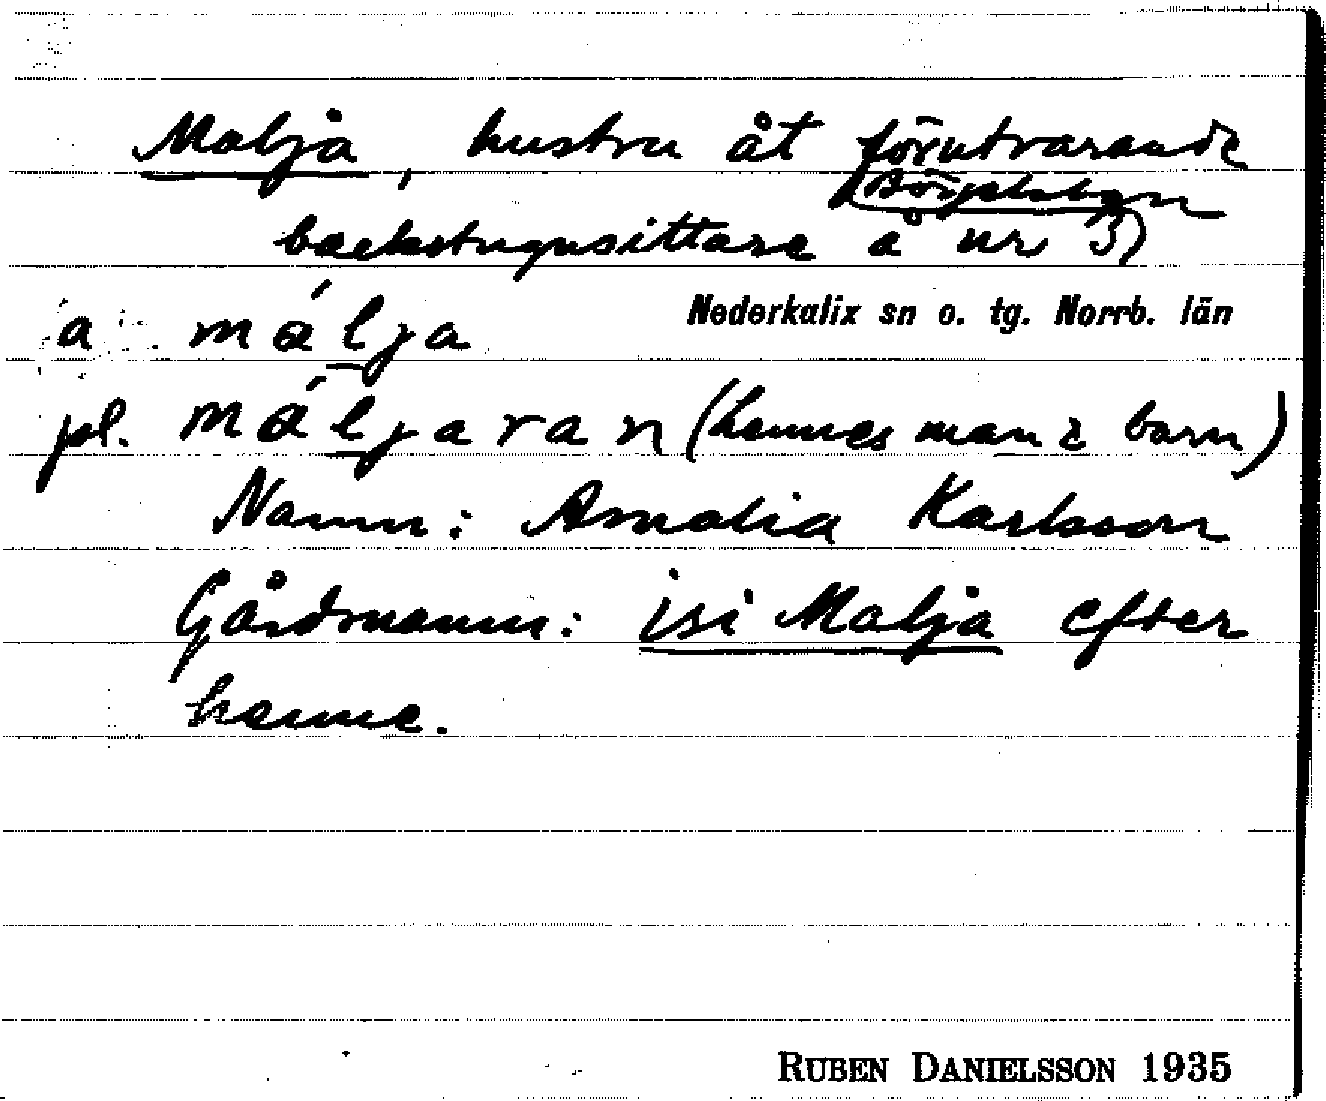 Malja, hustru åt förutvarande
Börjelsbyn
backstugusittare å nr 3)
Nederkalix sn o. tg. Norrb. län
a málja
pl. máljaran (hennes man o barn)
Namn: Amalia Karlsson
Gårdsnamn: isi Malja efter
henne.
RUBEN DANIELSSON 1935